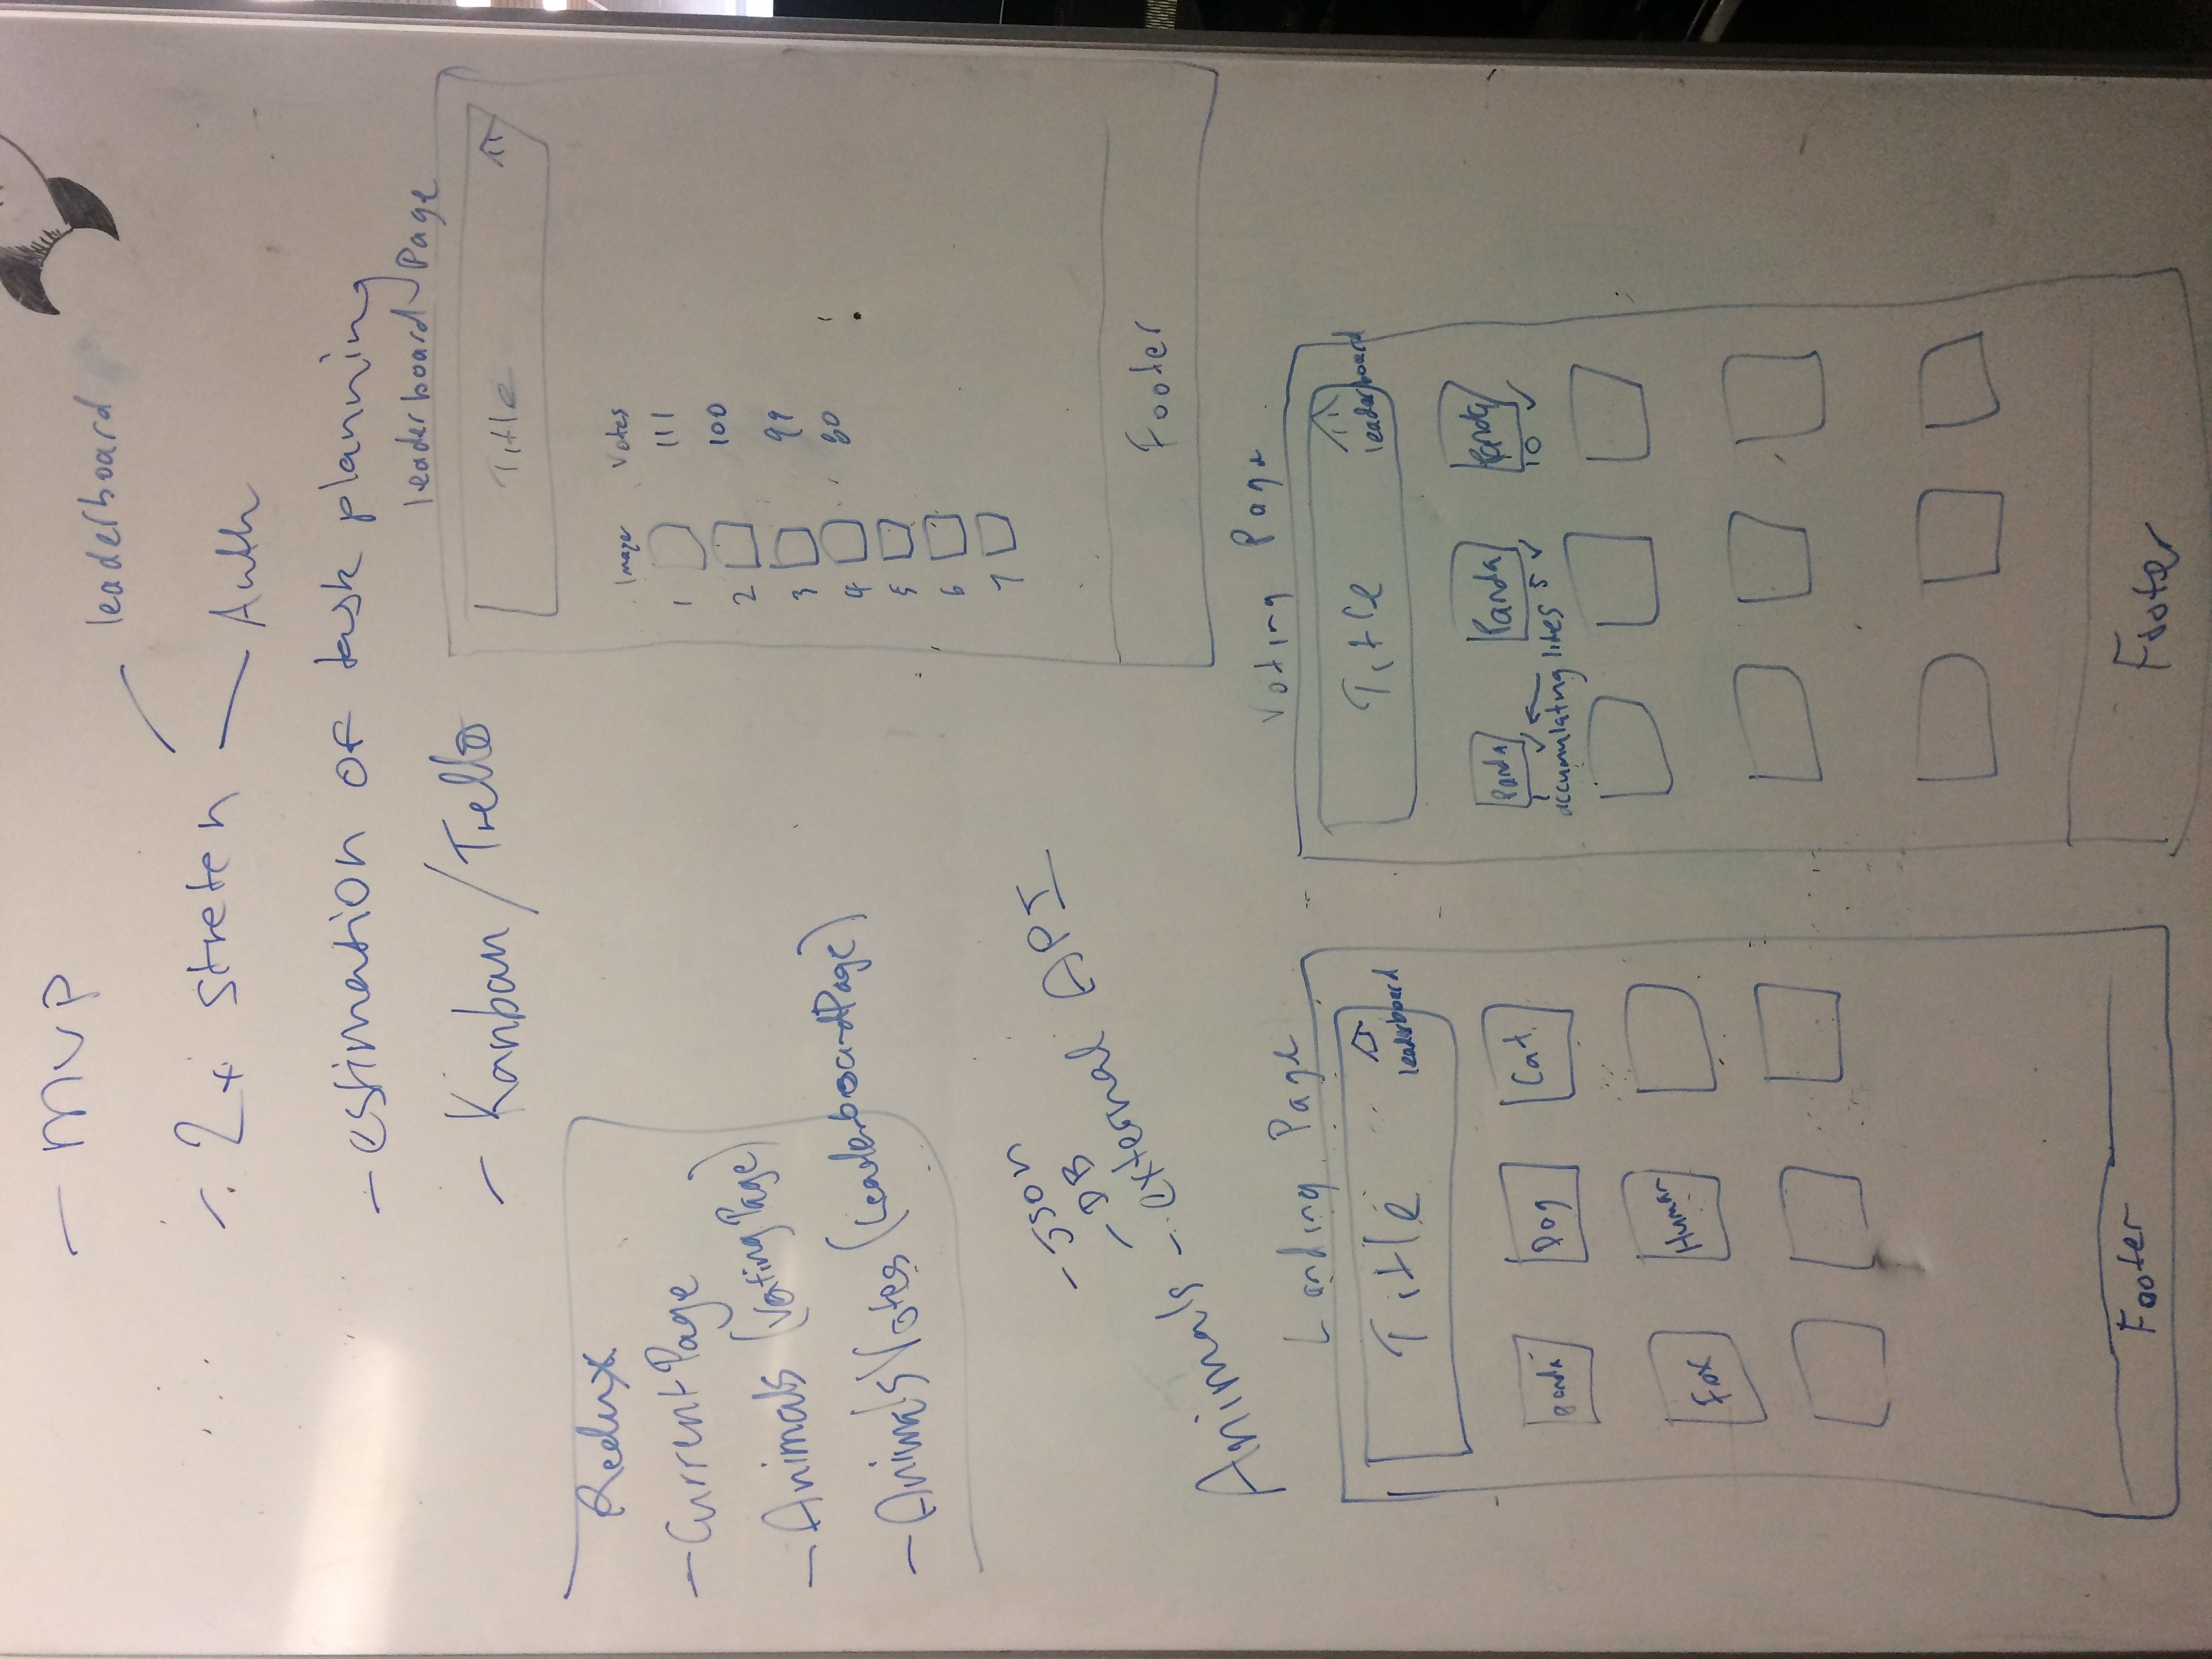 - MVP
- 2x streten
leaderboard
Auth
- estimation of task planning
- Kanban / Trello
Redux
- CurrentPage
- Animals (VotingPage)
- AnimalsVotes (LeaderboardPage)
Animals
- JSON
- DB
- external API
leaderboard Page
Title
Votes
1 111
2 100
3 99
4
5
6
7
Footer
Landing Page
Title
leaderboard
Panda Dog Cat
Fox Human
Footer
Voting Page
Title
leaderboard
Panda Panda Panda
1 ✓ ← 5 ✓ 10 ✓
accumulating likes
Footer